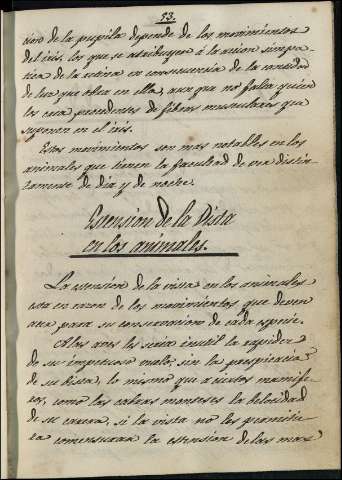 53.
cion de la pupila depende de los movimientos
del iris, los que se atribuyen á la accion simpa-
tica de la retina en consecuencia de la cantidad
de luz que obra en ella, aunque no falta quien
los crea procedentes de fibras musculares que
suponen en el iris.
Estos movimientos son mas notables en los
animales que tienen la facultad de ver distin-
tamente de dia y de noche.
Estension de la Vista
en los animales.
La estension de la vista en los animales
esta en razon de los movimientos que deven
para su conservacion de cada especie.
A las aves les seria inutil la rapidez
de su impetuoso vuelo, sin la perspicacia
de su vista, lo mismo que a ciertos mamife-
ros, como las cabras monteses la velocidad
de su carrera, si la vista no les permitie-
ra comensurar la estension de las mas